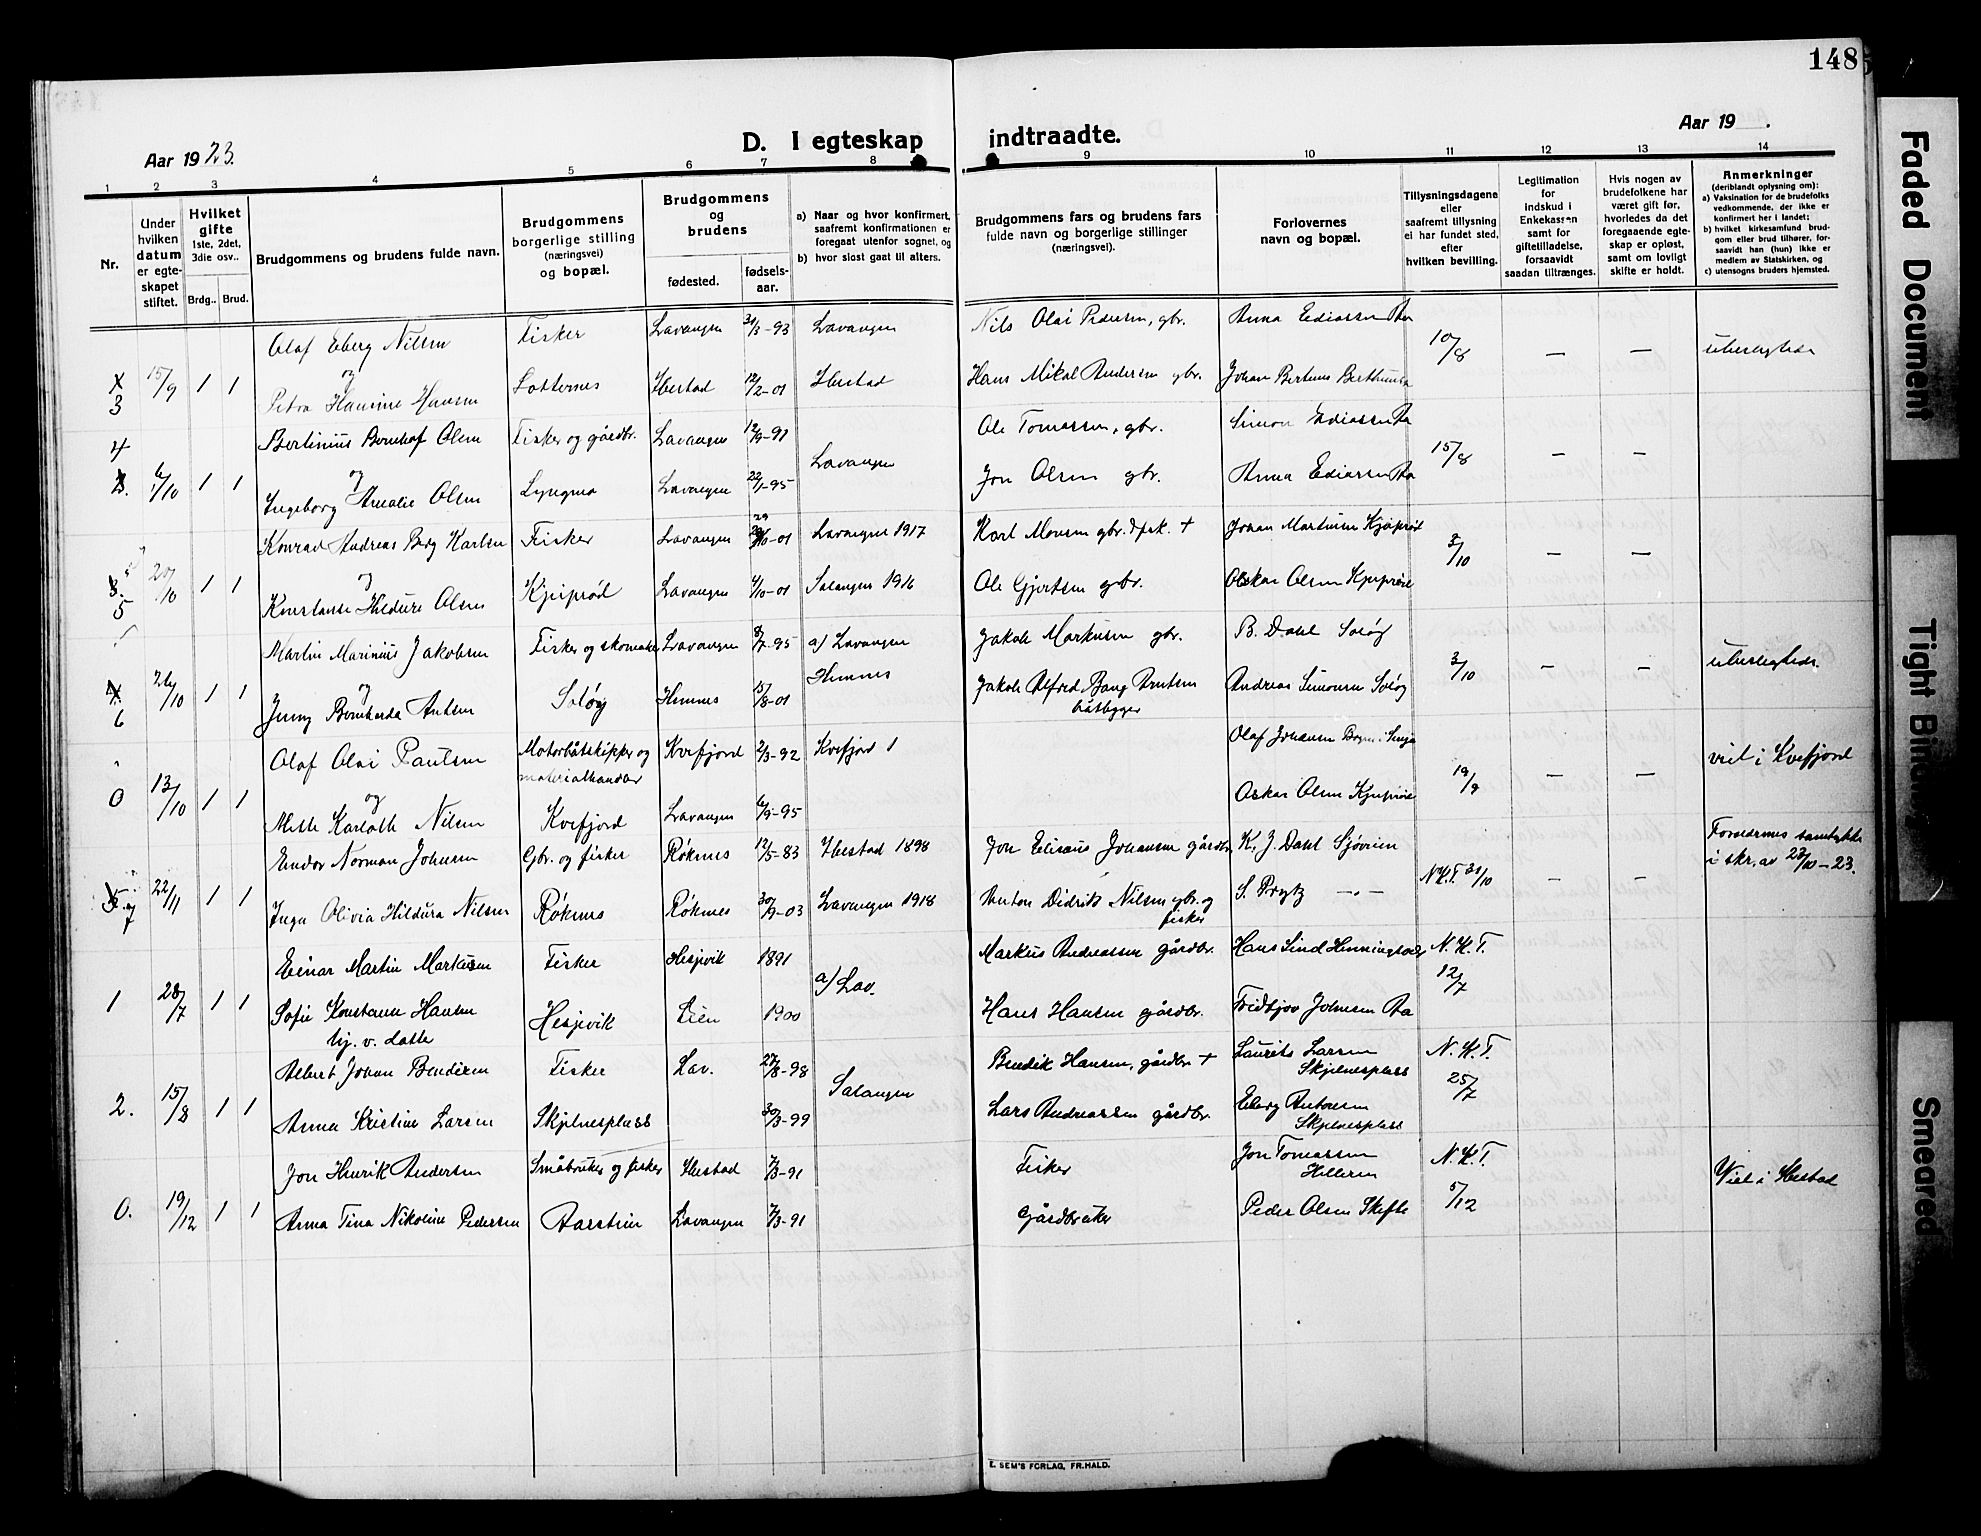 148
Aar 1923.
D. I egteskap indtraadte.
Aar 19 .
1 2 3 4 5 6 7 8 9 10 11 12 13 14
Nr.
Under hvilken datum er egte-skapet stiftet.
Hvilket gifte 1ste, 2det, 3die osv..
Brdg.. Brud.
Brudgommens og brudens fulde navn.
Brudgommens borgerlige stilling (næringsvei) og bopæl.
Brudgommens og brudens
fødested. fødsels-aar.
a) Naar og hvor konfirmert, saafremt konfirmationen er foregaat utenfor sognet, og
b) hvor sisst gaat til alters.
Brudgommens fars og brudens fars fulde navn og borgerlige stillinger (næringsvei).
Forlovernes navn og bopæl.
Tillysningsdagene eller saafremt tillysning ei har fundet sted, efter hvilken bevilling.
Legitimation for indskud i Enkekassen samt for giftetilladelse, forsaavidt saadan tiltrænges.
Hvis nogen av brudefolkene har været gift før, hvorledes da det foregaaende egte-skap er opløst, samt om lovligt skifte er holdt.
Anmerkninger (deriblandt oplysning om):
a) Vaksination for de brudefolks vedkommende, der ikke er konfirmert her i landet;
b) hvilket kirkesamfund brud-gom eller brud tilhører, for-saavidt han (hun) ikke er medlem av Statskirken, og
c) utensogns bruders hjemsted.
Olaf Eberg Nilsen Fisker Lavangen 31/3-93 Lavangen Nils Olai Pedersen, gbr. Anna Ediassen Aa
3 15/9 1 1 og 10/8 — —
Petra Hansine Hansen Hestad 12/2-01 Ibestad Hans Mikal Andersen gbr. Johan Bertheus
4 Bertinius Bernhof Olsen Fisker og gårdbr. Lavangen 12/9-91 Ole Tomassen, gbr. Simon Ediassen Aa
6/10 1 1 og Lavangen 15/8 — —
Ingeborg Amalie Olsen Lavangen 22/1-95 Jon Olsen gbr. Anna Ediassen Aa
Konrad Andreas Berg Karlsen Fisker Lavangen 29/10-01 Lavangen 1917 Karl Monsen gbr. + Johan Martinsen
5 20/10 1 1 og 3/10 — —
Konstanse Hildure Olsen Lavangen 4/10-01 Salangen 1916 Ole Gjertsen gbr. Oskar Olsen
Martin Marinius Jakobsen Fisker og skomaker Lavangen 8/7-95 a) Lavangen Jakob Markusen gbr. B. Dahl Soløy
6 26/10 1 1 og 3/10 — —
Jenny Bernharda Antsen Soløy Hemnes 15/8-01 Hemnes Jakob Alfred Bang Arntsen båtbygger Andreas Simonsen Soløy
Olaf Olai Paulsen Motorbåtskipper og materialhandler Kvefjord 2/3-92 Kvefjord 1 Olaf Johansen
0 13/10 1 1 og 19/9 — — viet i Kvefjord
Mette Karlotte Nilsen Kvefjord Lavangen 6/9-95 Oskar Olsen
Endor Norman Johnsen Gbr. og fisker Røknes 12/5-83 Ibestad 1898 Jon Eliseus Johansen gårdbr. K. J. Dahl Sjøveien
7 22/11 1 1 N.K.T. 31/10 — — samtykke i skr. av 23/10-23.
Inga Olivia Hildura Nilsen Røknes Røknes 30/9-03 Lavangen 1918 Anton Didrik Nilsen gbr. og fisker S. Prytz —"—
Einar Martin Markusen Fisker Hesjevik 1891 Markus Andreassen gårdbr. Hans Lind N.K.T.
1 28/7 1 1 a) Lav. 12/7
Sofie Konstanse Hansen Hesjevik Lien 1900 Hans Hansen gårdbr. Fridtjov Johnsen Aa
Albert Johan Bendixen Fisker Lav. 27/8-98 Bendik Hansen, gårdbr + Laurits Larsen Skjelnesplass N.K.T.
2. 15/8 1 1 Salangen 25/7
Anna Kristine Larsen Skjelnesplass 30/3-99 Lars Andreassen gårdbr. Eberg Antonsen Skjelnesplass
Jon Henrik Andersen Småbruker og fisker Ibestad 7/3-91 Fisker Jon Tomassen N.K.T.
0. 19/12 1 1 5/12 Viet i Ibestad
Anna Tina Nikoline Pedersen Aarstein Lavangen 7/3-91 Gårdbruker Peder Olsen
E. SEM'S FORLAG, FR.HALD.
Faded Document
Tight Binding
Smeared